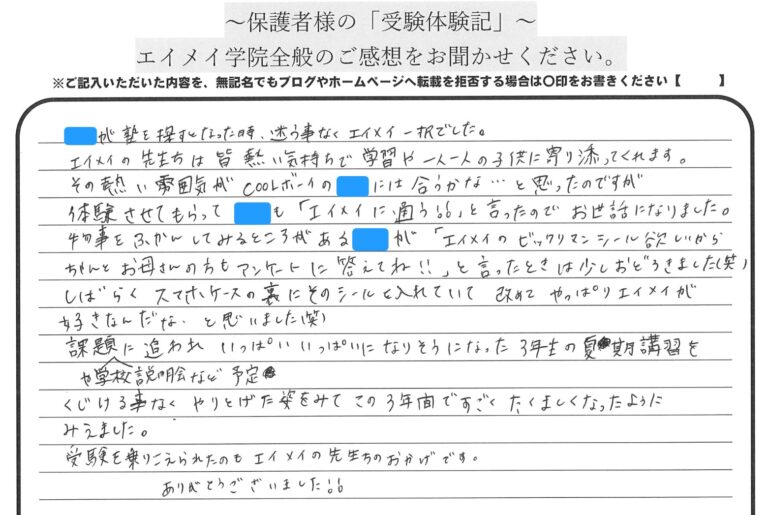 ～保護者様の「受験体験記」～
エイメイ学院全般のご感想をお聞かせください。
※ご記入いただいた内容を、無記名でもブログやホームページへ転載を拒否する場合は〇印をお書きください【　　】
が塾を探すとなった時、迷う事なくエイメイ一択でした。
エイメイの先生方は皆熱い気持ちで学習や一人一人の子供に寄り添ってくれます。
その熱い雰囲気がCOOLボーイの には合うかな…と思ったのですが
体験させてもらって も「エイメイに通う!!」と言ったのでお世話になりました。
物事をふかんしてみるところがある が「エイメイのビックリマンシール欲しいから
ちゃんとお母さんの方もアンケートに答えてね!!」と言ったときは少しおどろきました(笑)
しばらくスマホケースの裏にそのシールを入れていて 改めてやっぱりエイメイが
好きなんだな と思いました(笑)
課題に追われ いっぱいいっぱいになりそうになった3年生の夏期講習を
や学校説明会など予定
くじける事なく やりとげた姿をみて この3年間ですごくたくましくなったように
みえました。
受験を乗りこえられたのもエイメイの先生方のおかげです。
ありがとうございました!!